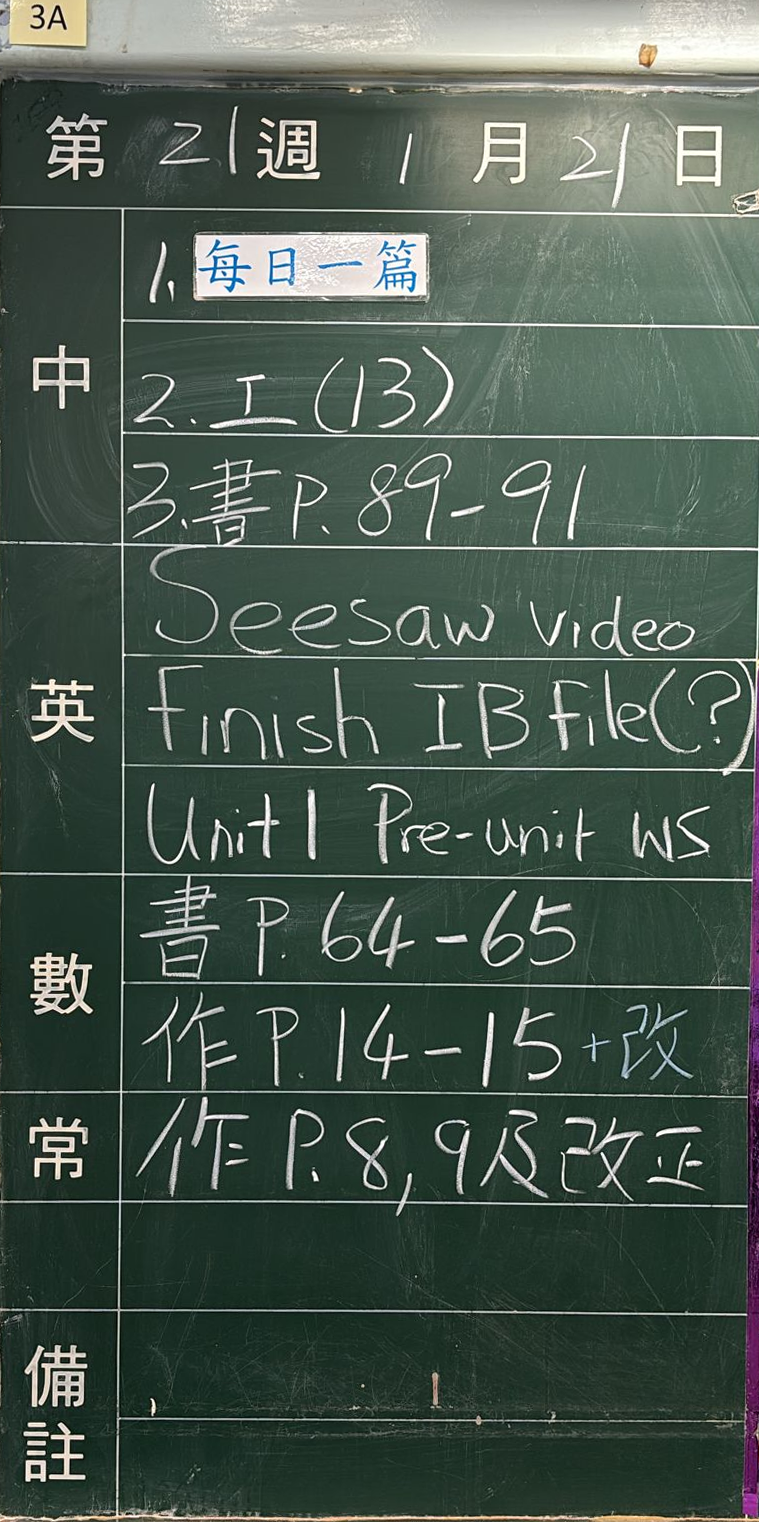 3A
第 21 週 1 月 21 日
中
1. 每日一篇
2. 工(13)
3. 書 P. 89-91
英
Seesaw video
Finish IB file(?)
Unit 1 Pre-unit WS
數
書 P. 64-65
作 P. 14-15 +改
常
作 P. 8, 9及改正
備註